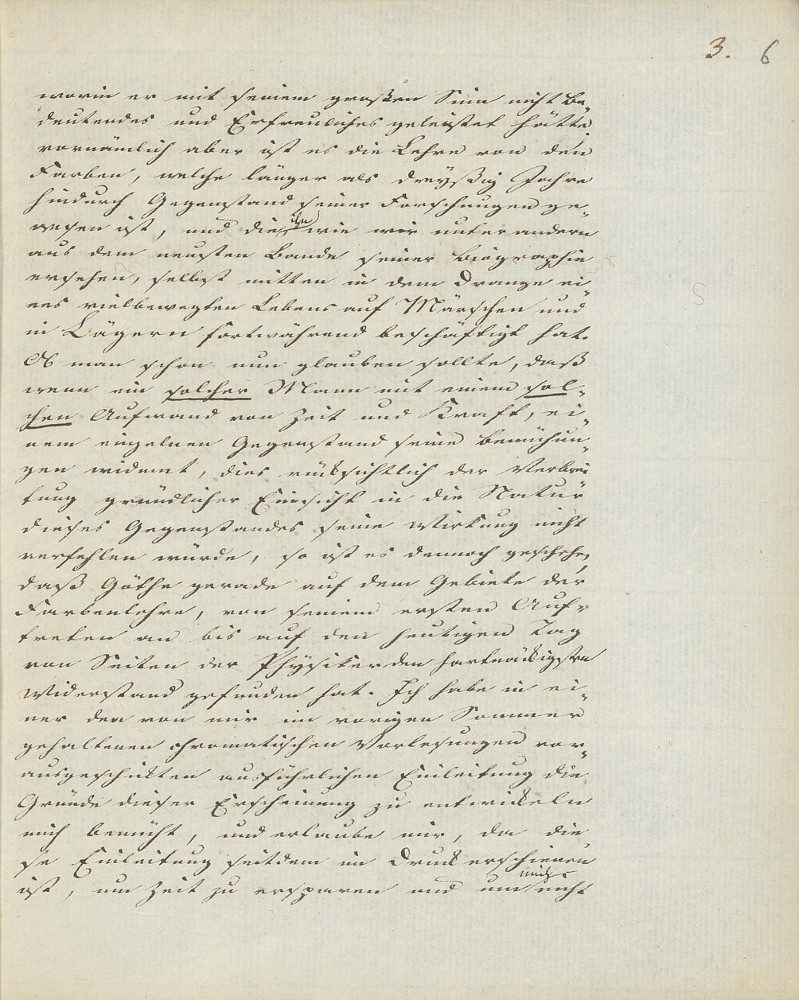 3. 6
worin er mit seinem großen Sinn nicht Be-
deutendes und Erfreuliches geleistet hätte,
vornämlich aber ist es die Lehre von den
Farben, welche länger als dreyßig Jahre
hindurch Gegenstand seiner Forschungen ge-
wesen ist, und die ihn wie wir unter andern
aus dem neusten Bande seiner Biographie
ersehen, selbst mitten in dem Drange ei-
nes vielbewegten Lebens auf Märschen und
in Lägern fortwährend beschäftigt hat.
Ob man schon nun glauben sollte, daß
wenn ein solcher Mann mit einem sol-
chen Aufwand von Zeit und Kraft, ei-
nem einzelnen Gegenstand seine Bemühun-
gen widemt, dies rücksichtlich der Verbrei-
tung gründlicher Einsicht in die Natur
dieses Gegenstandes seine Wirkung nicht
verfehlen würde, so ist es dennoch geschehen,
daß Göthe gerade auf dem Gebiete der
Farbenlehre, von seinem ersten Auf-
treten an bis auf den heutigen Tag
von Seiten der Physiker den hartnäckigsten
Widerstand gefunden hat. Ich habe in ei-
ner den von mir im vorigen Sommer
gehaltenen chromatischen Vorlesungen vor-
ausgeschickten ausführlichen Einleitung die
Gründe dieser Erscheinung zu entwickeln
mich bemüht, und erlaube mir, da die-
se Einleitung seitdem im Druck erschienen
ist, um Zeit zu ersparen und um mich nicht